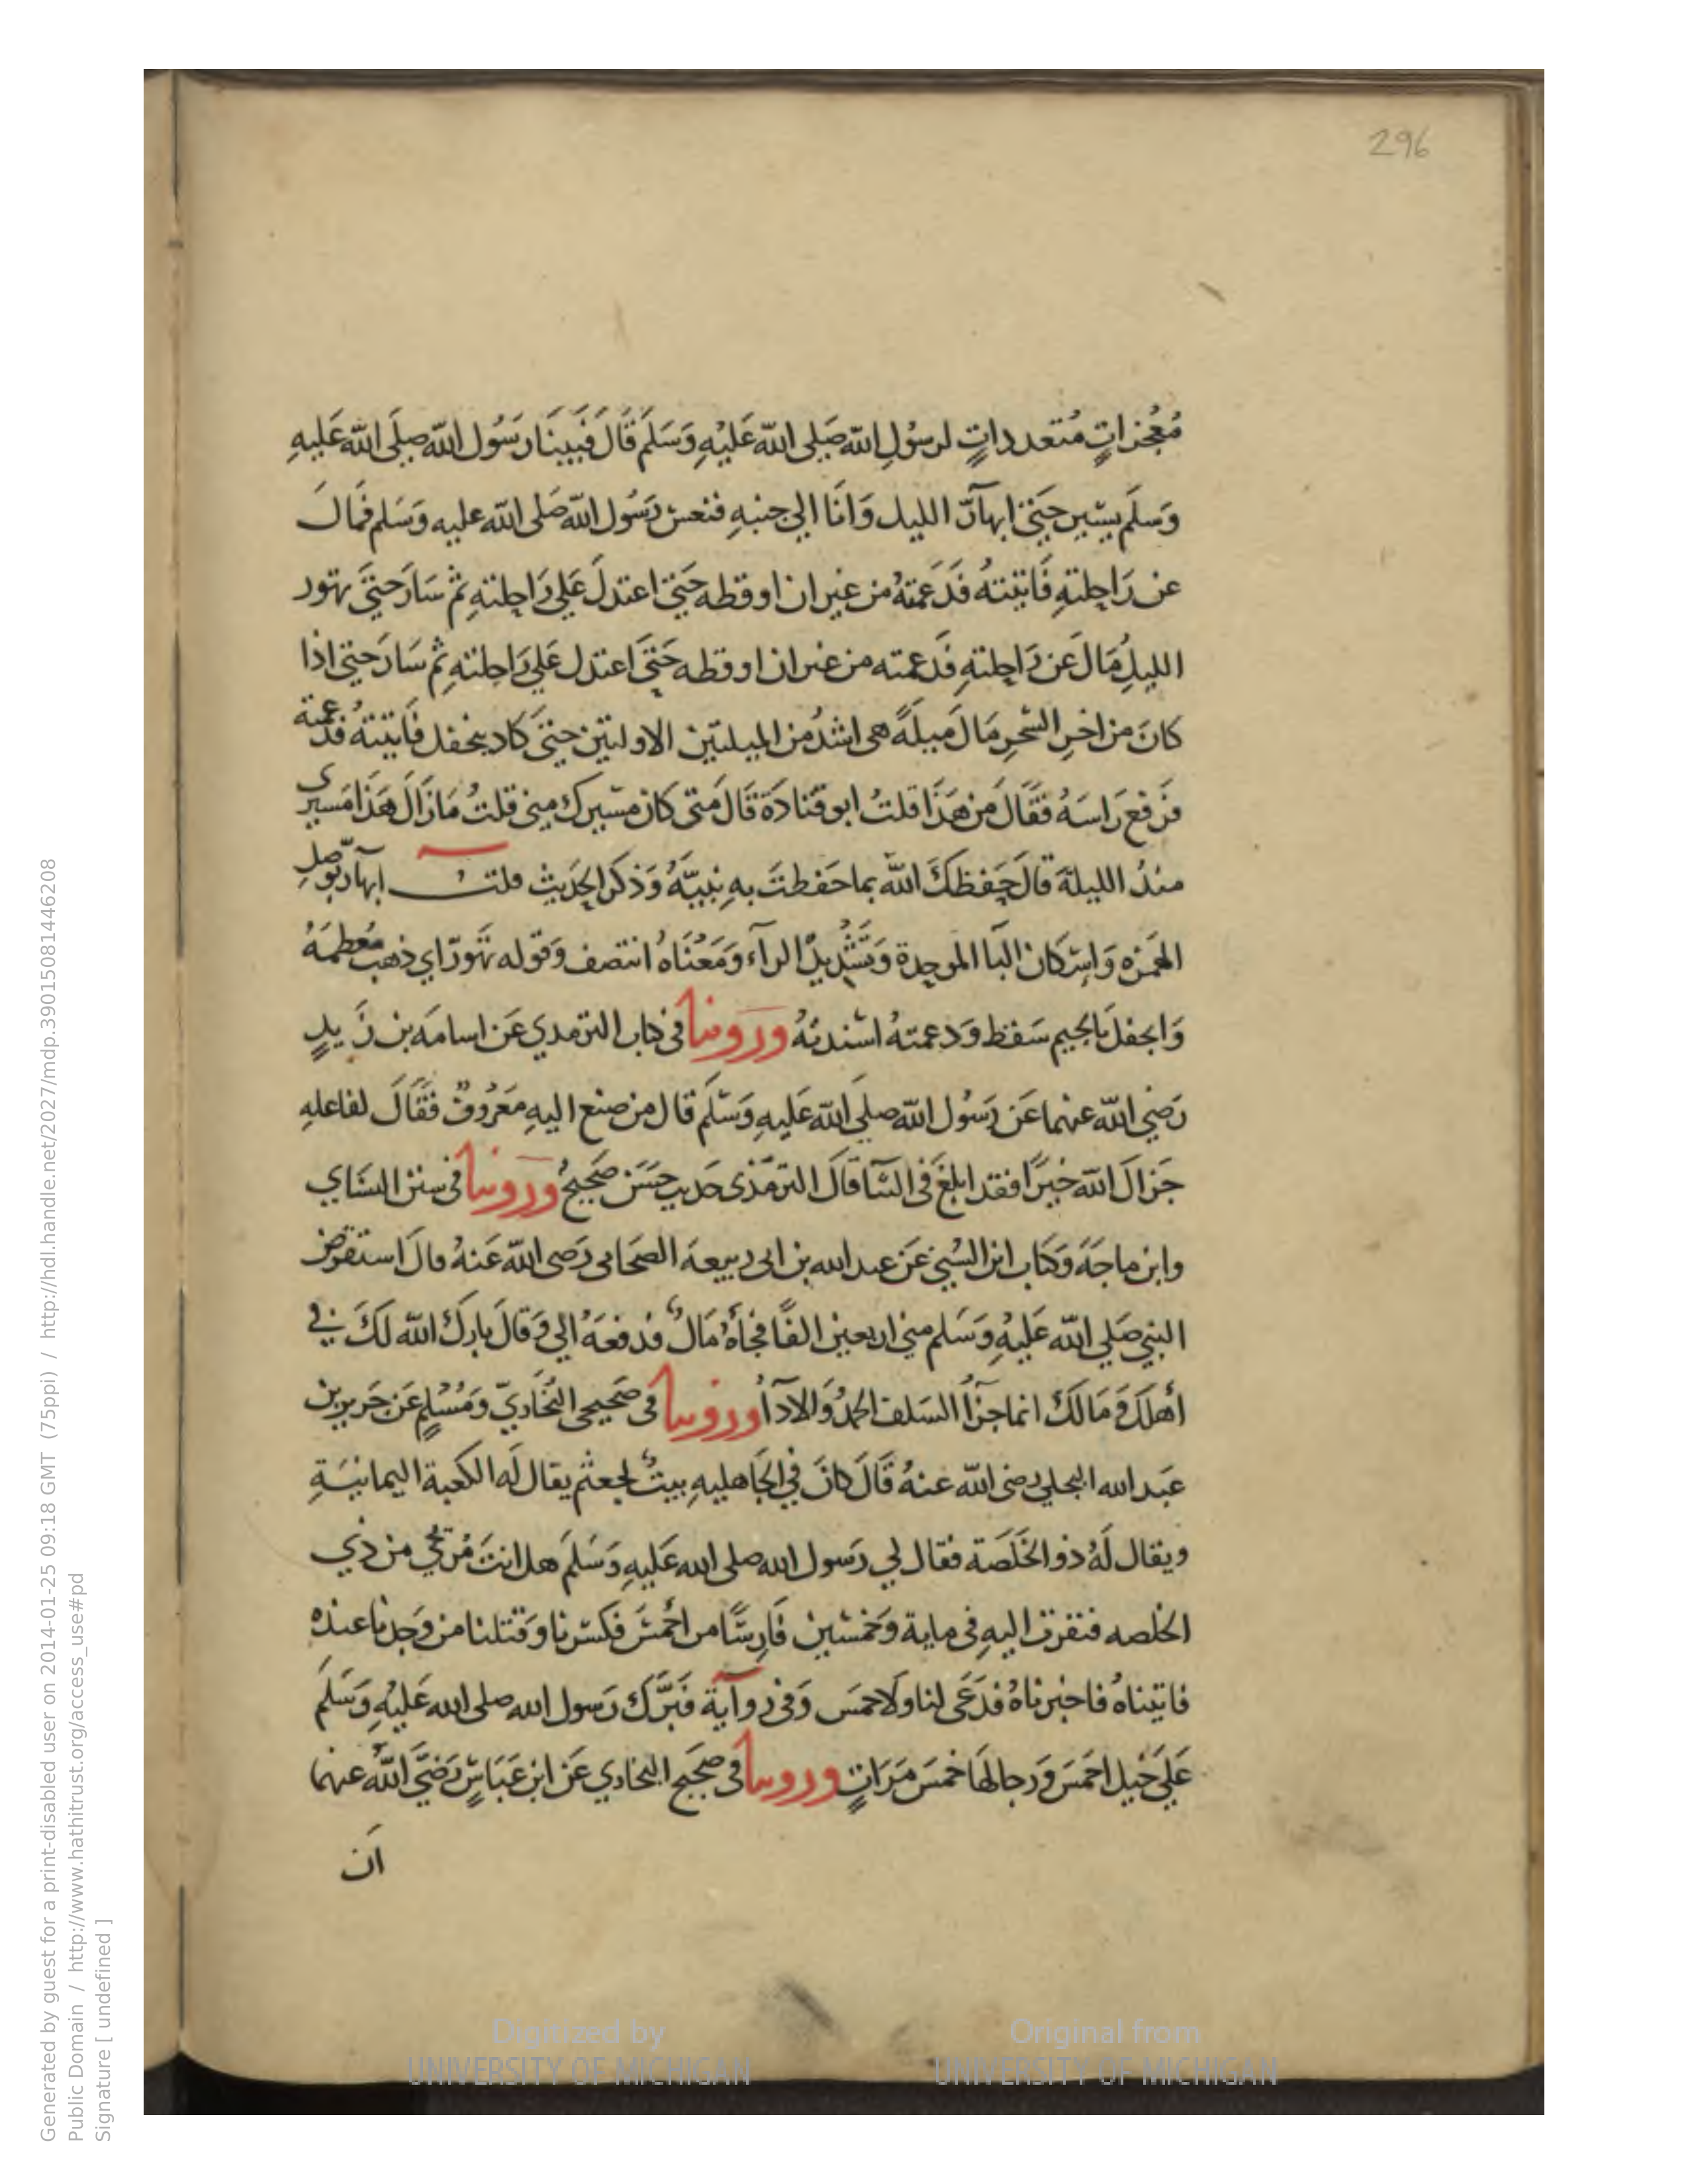 296
مُعْجزاتٍ مُتعدداتٍ لرسُولِ الله صَلى الله عَليْهِ وَسَلم قَالَ فَبَيْنَا رَسُول الله صلى الله عَليهِ
وَسلَم يسِير حَتى ابهآرّ الليل وَانَا الي جنبهِ فنعس رَسُول الله صَلى الله عليه وَسَلم فمَالَ
عن رَاحِلتهِ فَاتيته فَدَعَمتهُ من غير ان اوقظه حَتى اعتدلَ عَلي رَاحِلتهِ ثم سَارَ حتيَ تهور
الليلِ مَالَ عَن رَاحلتهِ فَدَعمته من غير ان اوقظه حَتىَ اعتدل عَلي رَاحلتهِ ثم سَارَ حتى اذا
كانَ من اخرِ السَّحرِ مَالَ مَيلَةً هى اشدُ من الميلتين الاوليتين حتىَ كاد ينجفل فَاتيتهُ فدَعمته
فرَفع رَاسَهُ فقَالَ من هَذَا قلتُ ابو قتادَة قَالَ مَتى كان مَسيرك منى قلتُ مَازَالَ هَذَا مَسيري
منذُ الليلة قالَ حَفظكَ الله بما حَفظتَ بهِ نبيَّهُ وَذكر الحَديث قلت ابهآرّ بوَصلِ
الهَمزه وَاسكان البَا الموحدة وَتَشْديد الرآء وَمَعْنَاهُ انتصف وَقوله تَهَورّ اي ذهب مُعظمَهُ
وَانجفل بَالجيم سَقط وَدعمتهُ اسْندتهُ وَرَوينا فى كتاب الترمدي عَن اسامَه بن زَيدٍ
رَضي الله عنهما عَن رَسُول الله صلي الله عَليهِ وَسَلم قال من صنع اليهِ مَعرُوفٌ فقَالَ لفاعلهِ
جَزاكَ الله خيرًا فقد ابلغَ فى الثنا قالَ الترمَذى حَديث حسَن صَحيحُ وَرَوينا فى سنن النسَاي
وابن ماجَة وَكتاب ابن السُني عَن عبد الله بن ابى ربيعة الصحَابى رَضى الله عَنهُ قالَ استقرض
النبي صَلي الله عَليْهِ وَسَلم مني اربعين الفًا فجَاَهُ مَالٌ فدفعَهُ الي وَقالَ بارك الله لكَ في
أهلكَ وَمَالكَ انما جزآُ السَلف الحمدُ وَالادآُ وروينا فى صَحيحى البُخَاريّ وَمُسْلمٍ عَن جَرير بن
عَبد الله البجلي رضى الله عنهُ قَالَ كانَ فِي الجَاهليهِ بيتٌ لجعثم يقال لَه الكعبة اليمانيَةِ
ويقال لَهُ ذو الخَلَصَة فقال لي رَسول الله صلى الله عَليهِ وَسَلمَ هل انتَ مُريحى من ذي
الخلصه فنفرت اليهِ فى ماية وَخمسين فَارِسًا من احْمَسَ فكسَرنا وَقتلنا من وَجدنا عندهُ
فاتيناهُ فاخبرناهُ فدَعَى لنا ولاحمسَ وَفى روآية فَبَرَّك رَسول الله صلى الله عَليْهِ وَسَلَم
عَلَي خَيل احمَسَ وَرجالهَا خمسَ مَرَاتٍ وروينا فى صحيح البخاري عَن ابن عَبَاسٍ رَضيَ اللهُ عنهما
اَن
Generated by guest for a print-disabled user on 2014-01-25 09:18 GMT (75ppi) / http://hdl.handle.net/2027/mdp.39015081446208
Public Domain / http://www.hathitrust.org/access_use#pd
Signature [ undefined ]
Digitized by
UNIVERSITY OF MICHIGAN
Original from
UNIVERSITY OF MICHIGAN